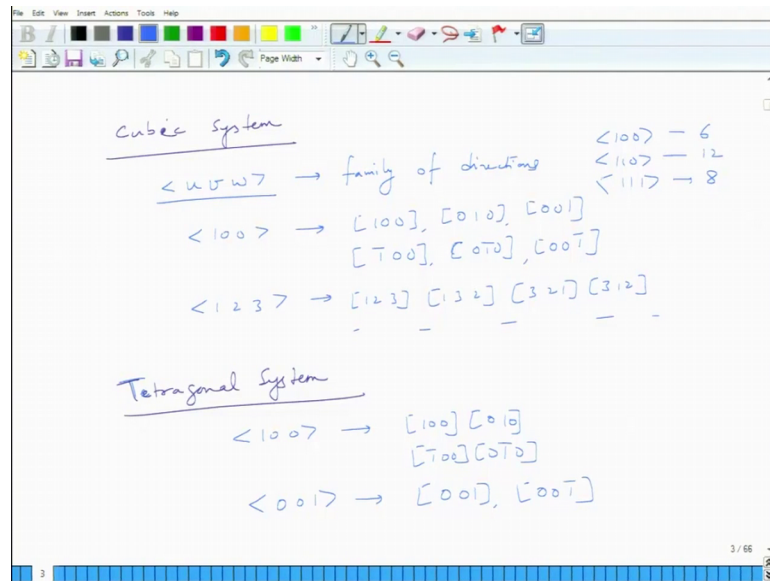 File Edit View Insert Actions Tools Help
B I
Page Width
Cubic System
<100> — 6
<110> — 12
<111> → 8
<u v w> → family of directions
<100> → [100], [010], [001]
[1̅00], [01̅0], [001̅]
<123> → [123] [132] [321] [312]
Tetragonal System
<100> → [100] [010]
[1̅00] [01̅0]
<001> → [001], [001̅]
3 / 66
3